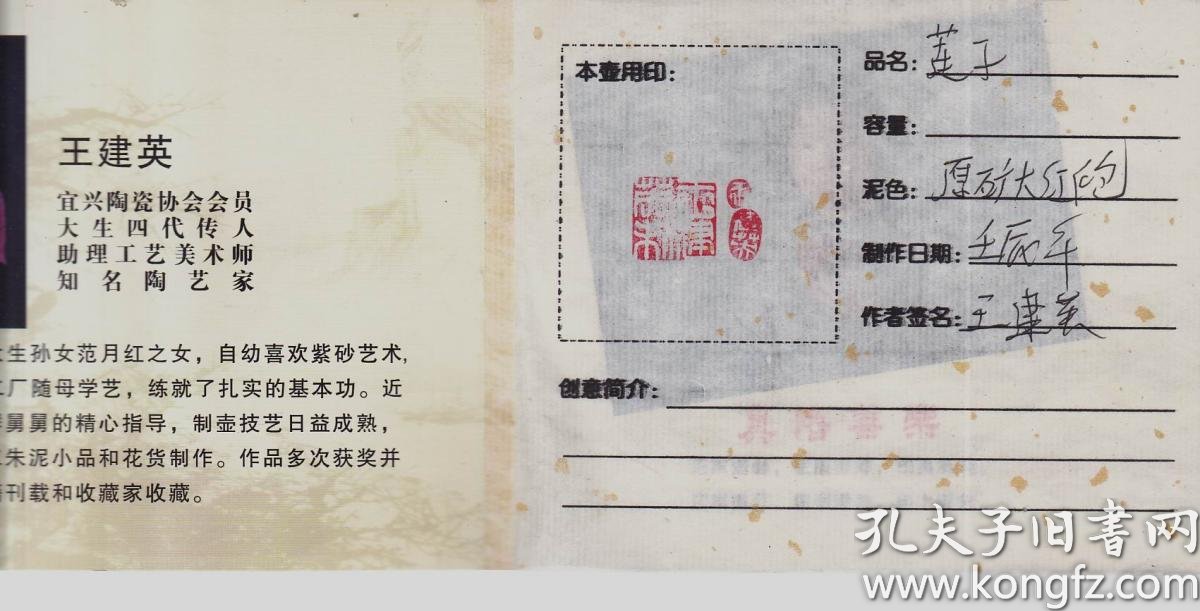 王建英
宜兴陶瓷协会会员
大生四代传人
助理工艺美术师
知名陶艺家
生孙女范月红之女，自幼喜欢紫砂艺术，
厂随母学艺，练就了扎实的基本功。近
舅舅的精心指导，制壶技艺日益成熟，
朱泥小品和花货制作。作品多次获奖并
刊载和收藏家收藏。
本壶用印：
品名：莲子
容量：
泥色：原矿大红袍
制作日期：壬辰年
作者签名：王建英
创意简介：
孔夫子旧书网
www.kongfz.com